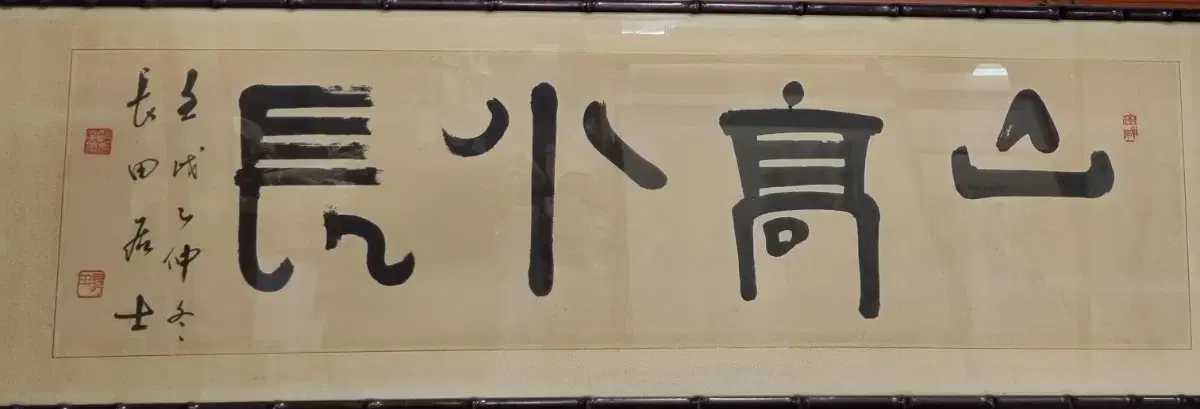 山高水長
壬戌之仲冬
長田居士